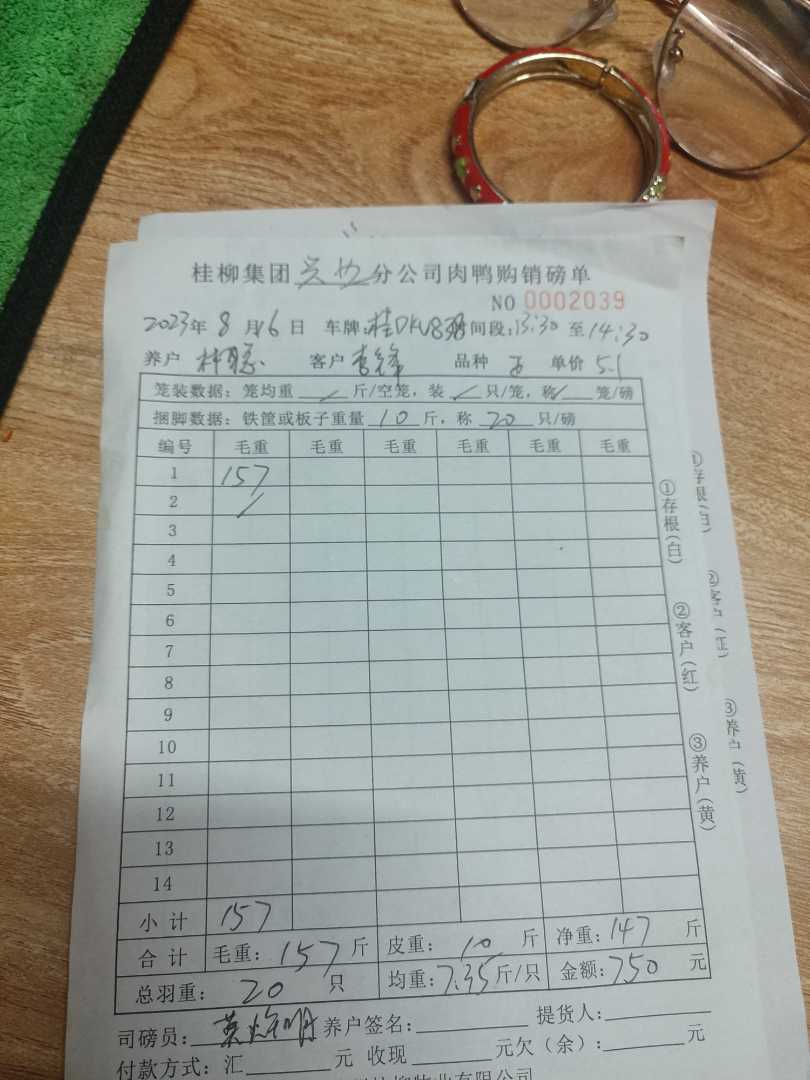 桂柳集团 分公司肉鸭购销磅单
NO 0002039
2023年 8 月16 日 车牌:桂DKV8 间段:13:30 至14:30
养户 林 客户 李锋 品种 单价 5.1
笼装数据：笼均重 / 斤/空笼，装 / 只/笼，称 / 笼/磅
捆脚数据：铁筐或板子重量 10 斤，称 20 只/磅
编号 毛重 毛重 毛重 毛重 毛重 毛重
1 157
2 /
3
4
5
6
7
8
9
10
11
12
13
14
小 计 157
合 计 毛重：157 斤 皮重：10 斤 净重：147 斤
总羽重：20 只 均重：7.35斤/只 金额：750 元
司磅员： 养户签名： 提货人：
付款方式：汇 元 收现 元欠（余）： 元
牧业有限公司
①存根(白)
②客户(红)
③养户(黄)
①存根(白)
②客户(红)
③养户(黄)